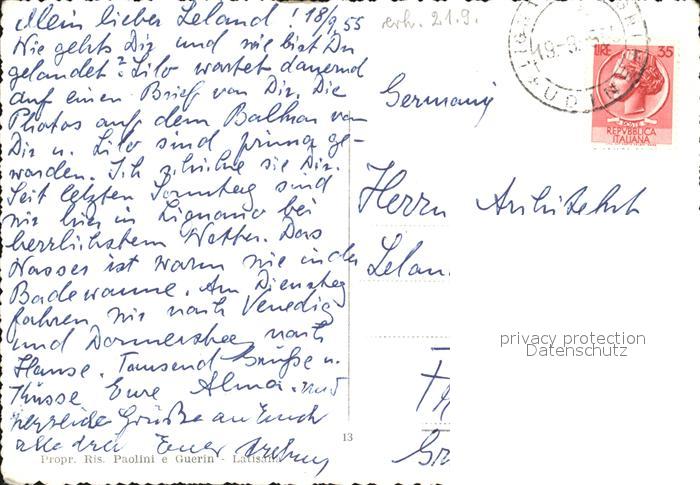 Mein lieber Leland! 18/9.55
Wie gehts Dir und wie bist Du
gelandet? Lilo wartet dauernd
auf einen Brief von Dir. Die
Photos auf dem Balkon von
Dir u. Lilo sind prima ge-
worden. Ich schicke sie Dir.
Seit letzten Sonntag sind
wir hier in Lignano bei
herrlichstem Wetter. Das
Wasser ist warm wie in der
Badewanne. Am Dienstag
fahren wir nach Venedig
und Donnerstag nach
Hause. Tausend Grüße u.
Küsse Eure Alma. und
herzliche Grüße an Euch
alle drei Euer
Propr. Ris. Paolini e Guerin - Latisana
13
erh. 21.9.
19-9
UDINE
LIRE 35
POSTE
REPVBBLICA
ITALIANA
Germany
Herrn Architekt
Lelan
privacy protection
Datenschutz